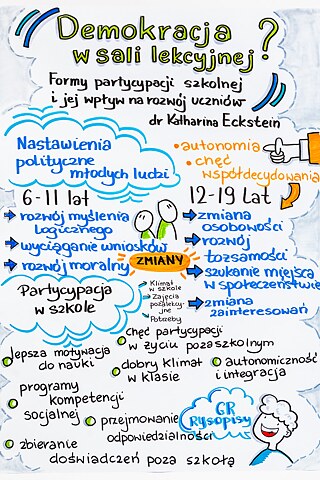 Demokracja
w sali lekcyjnej?
Formy partycypacji szkolnej
i jej wpływ na rozwój uczniów
dr Katharina Eckstein
Nastawienia
polityczne
młodych ludzi
• autonomia
• chęć
współdecydowania
6-11 lat
rozwój myślenia
logicznego
wyciąganie wniosków
rozwój moralny
12-19 lat
zmiana
osobowości
rozwój
tożsamości
szukanie miejsca
w społeczeństwie
zmiana
zainteresowań
ZMIANY
Partycypacja
w szkole
Klimat
w szkole
Zajęcia
pozalekcyj-
ne
Potrzeby
chęć partycypacji
w życiu pozaszkolnym
lepsza motywacja
do nauki
dobry klimat
w klasie
autonomiczność
i integracja
programy
kompetencji
socjalnej
przejmowanie
odpowiedzialności
zbieranie
doświadczeń poza szkołą
GR
Rysopisy